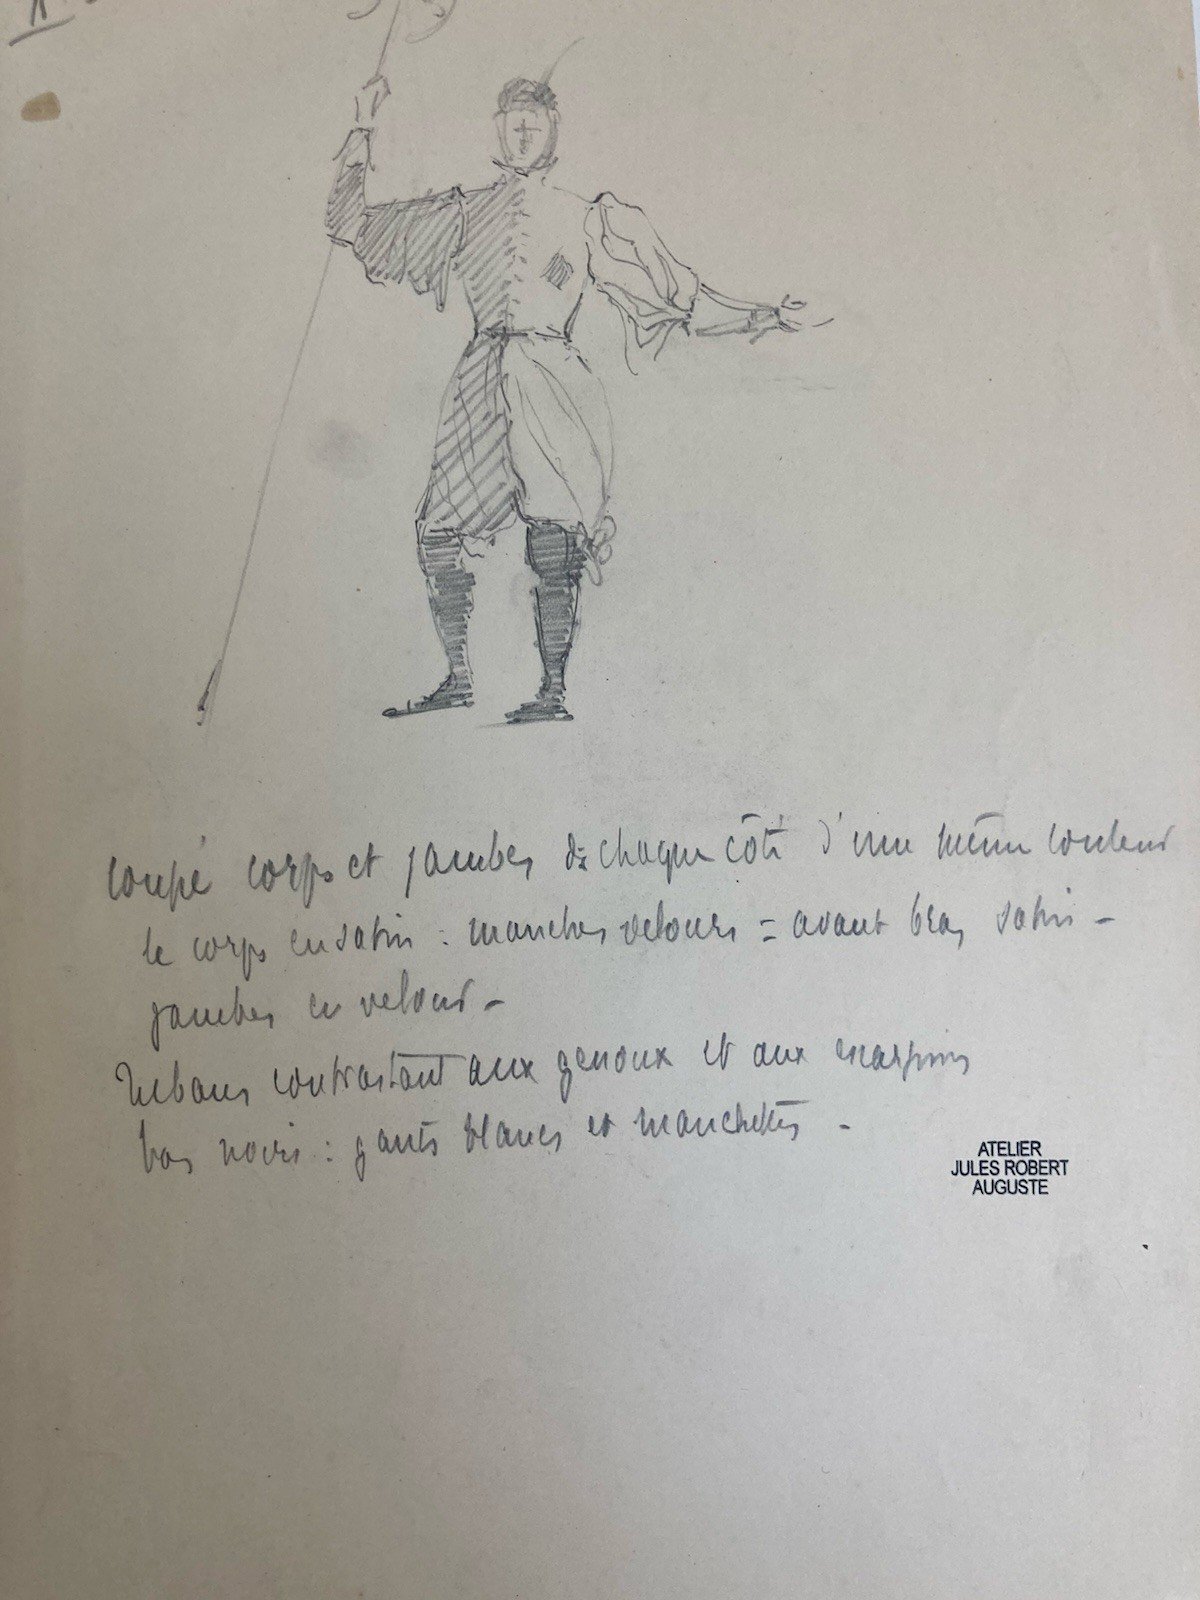 coupé corps et jambes de chaque côté d'une même couleur
le corps en satin : manches velours = avant bras satin -
jambes en velours -
Rubans contrastant aux genoux et aux escarpins
bas noirs : gants blancs et manchettes -
ATELIER
JULES ROBERT
AUGUSTE